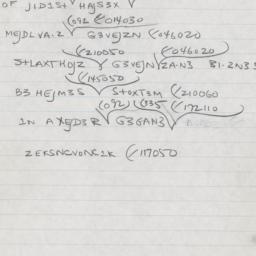 OF JIDIST HAJS3X
(092 (014030
MEJDLVA-2 G3VEJZN (046020
(210050 (046020
S+LAXTHOJZ G3VEJN ZA-N3 B1-2N3S
(145050
B3 HEJM3S S+OXT3M (210060
(092) (335 (172110
IN AXEJD3R G3GAN3
ZEKSNCVONC1K (117050